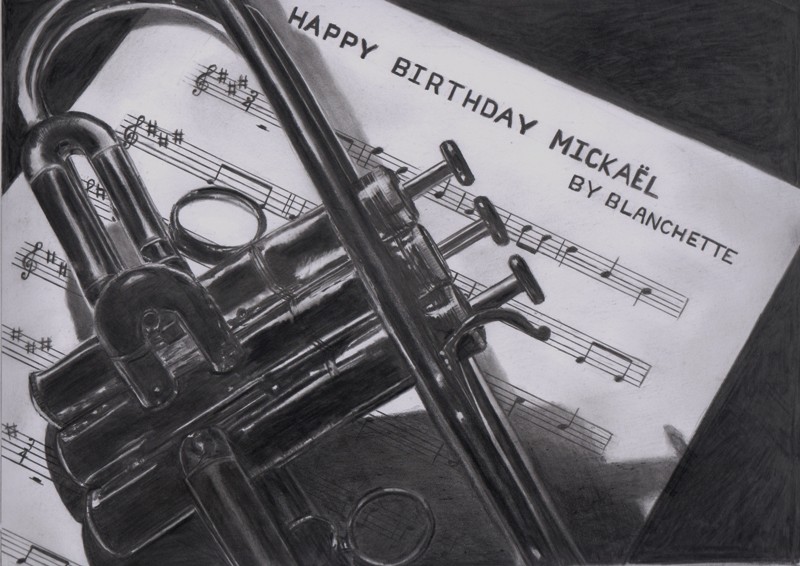 HAPPY BIRTHDAY MICKAËL
BY BLANCHETTE